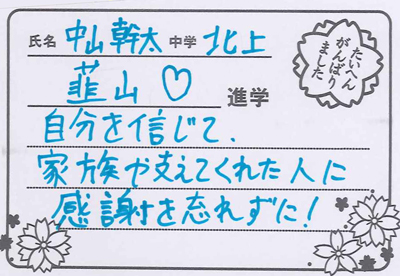 氏名 中山幹太 中学 北上
韮山♡ 進学
自分を信じて、
家族や支えてくれた人に
感謝を忘れずに!
たいへん
がんばり
ました